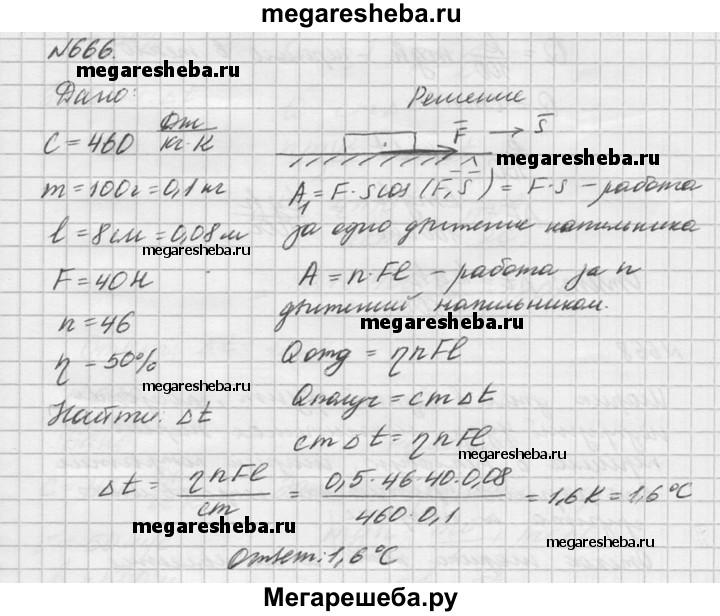 megaresheba.ru
№666.
megaresheba.ru
Дано:
C = 460 Дж/кг·К
m = 100г = 0,1 кг
l = 8 см = 0,08 м
megaresheba.ru
F = 40 Н
n = 46
η - 50%
megaresheba.ru
Найти: Δt
Решение
F → S
megaresheba.ru
A₁ = F · s cos (F, S) = F · s – работа
за одно движение напильника
megaresheba.ru
A = n · Fl – работа за n
движений напильником.
megaresheba.ru
Qотд = ηnFl
Qполуч = cmΔt
megaresheba.ru
cmΔt = ηnFl
Δt = ηnFl/cm = 0,5·46·40·0,08/460·0,1 = 1,6 К = 1,6°C
megaresheba.ru
megaresheba.ru
Ответ: 1,6°C
Мегарешеба.ру